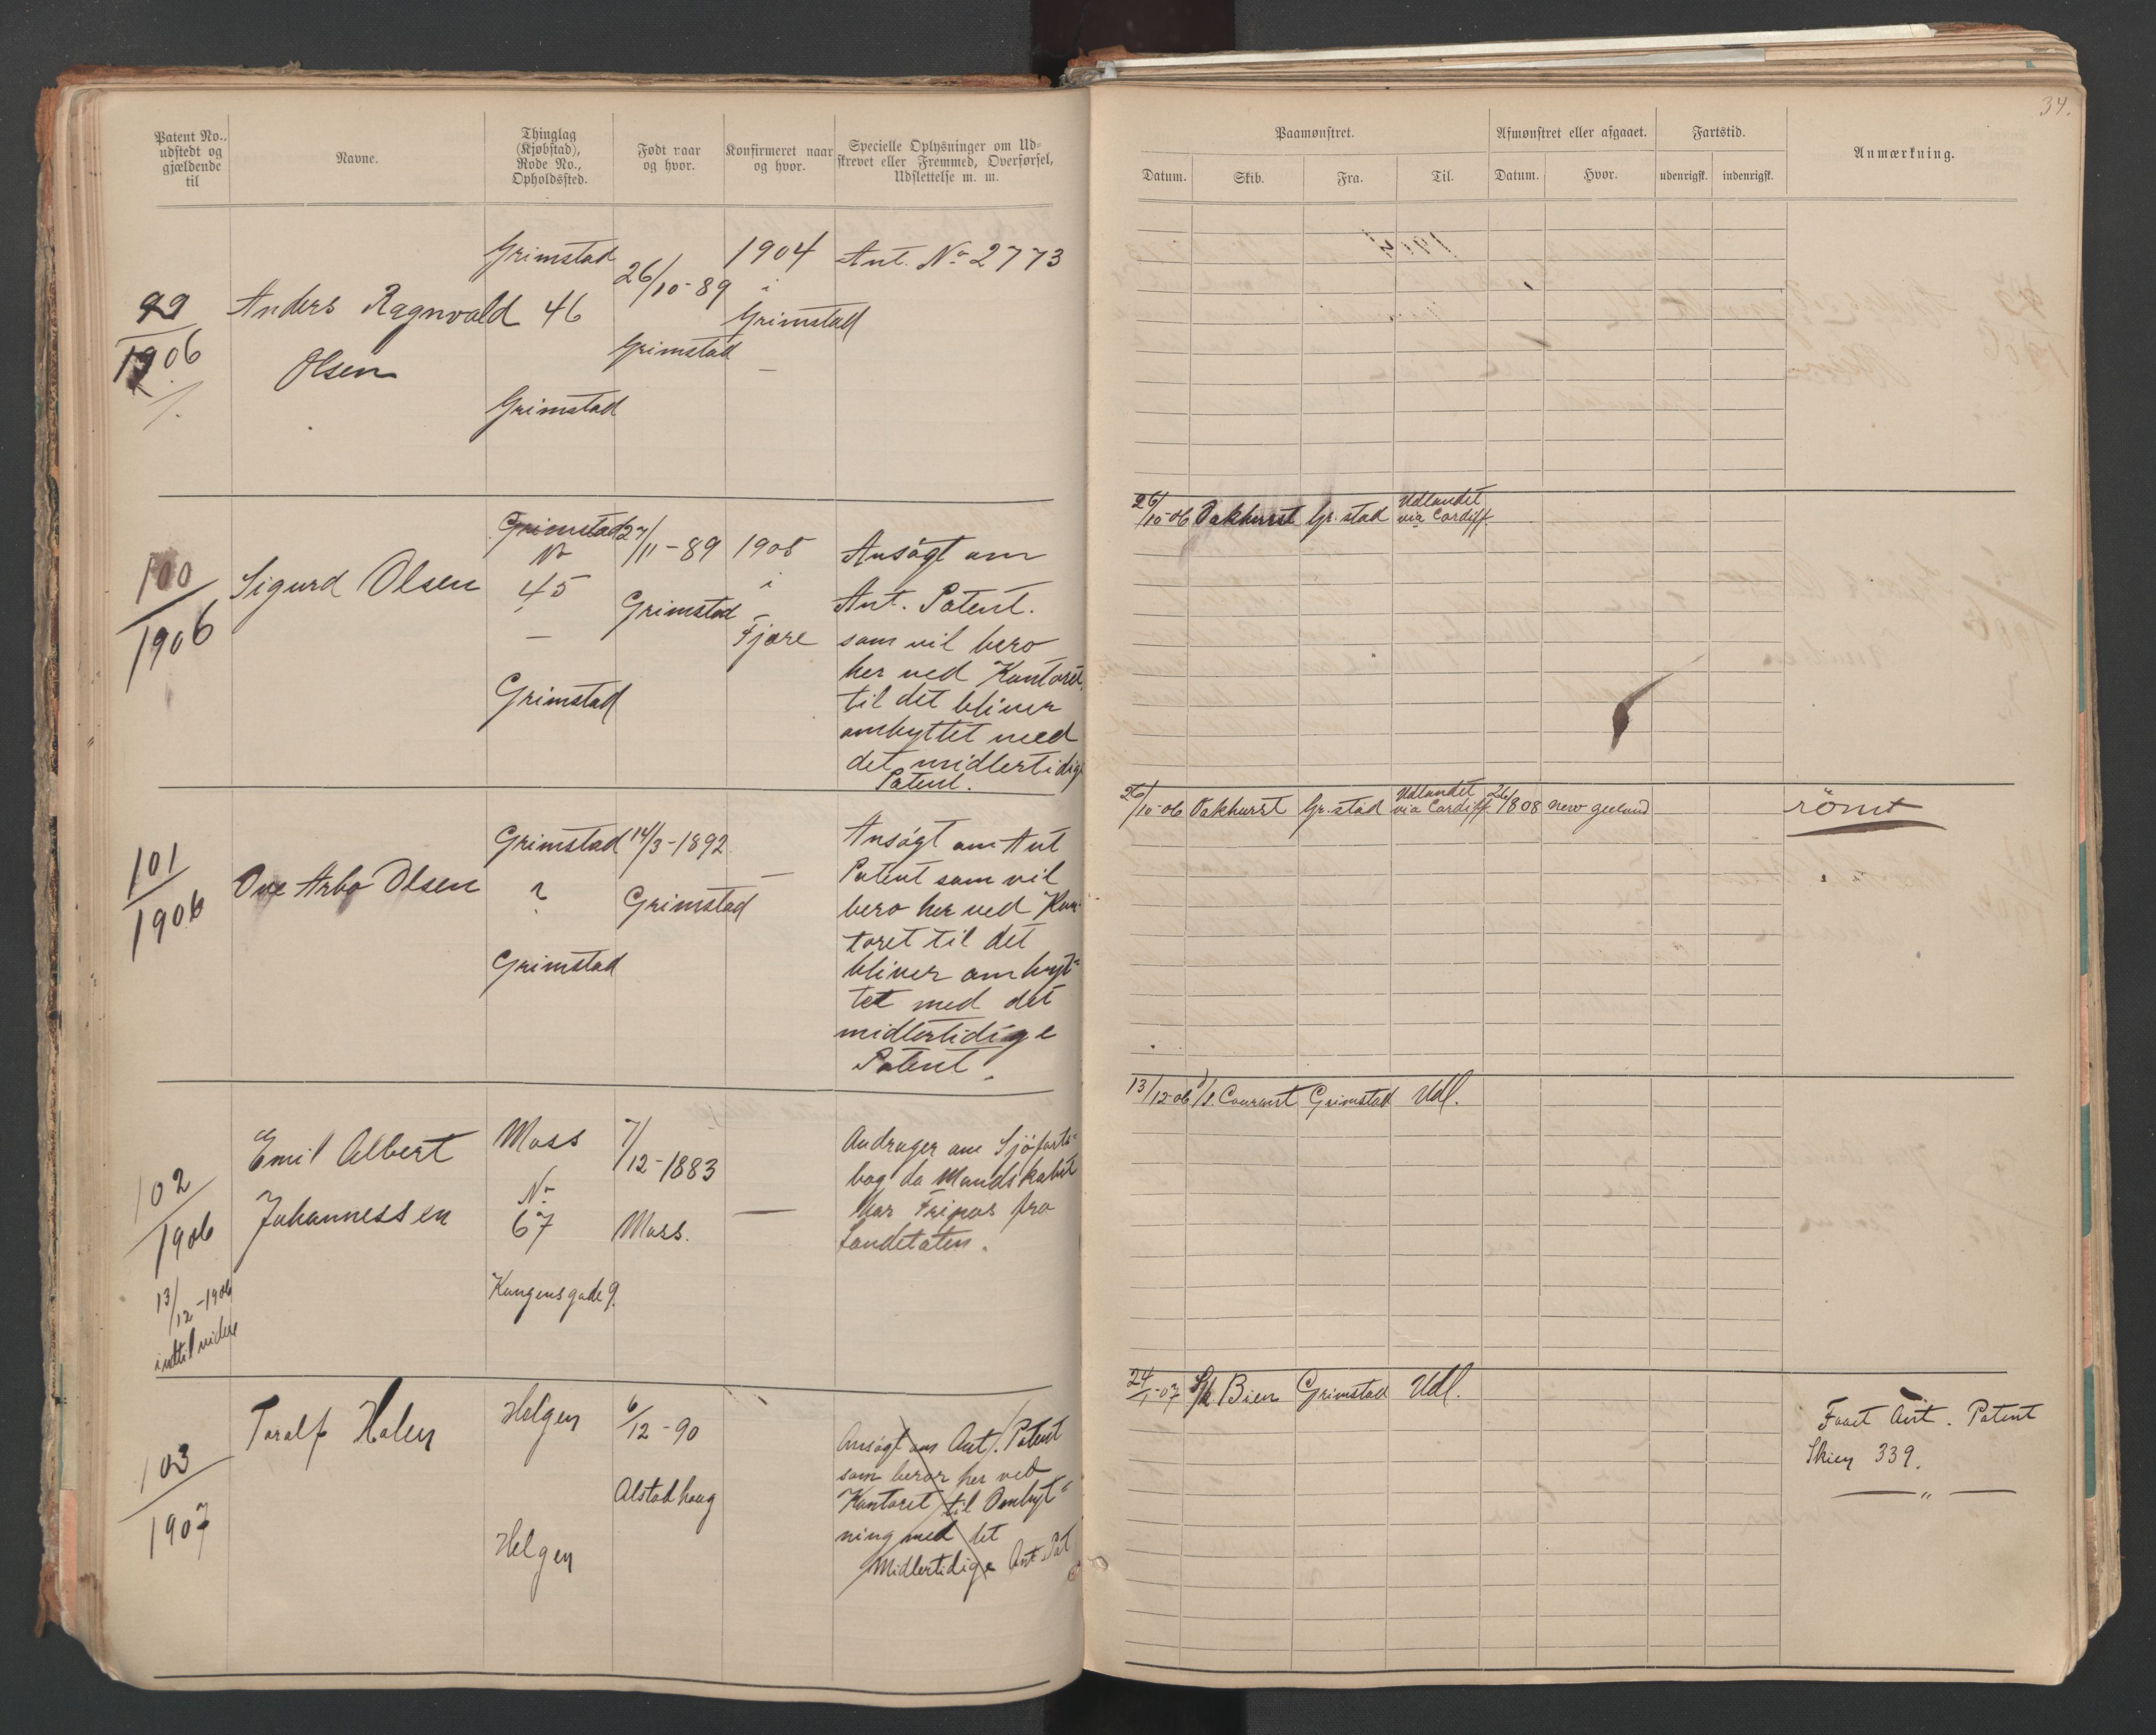 34.
Patent No., udstedt og gjældende til
Navne.
Thinglag (Kjøbstad), Rode No., Opholdssted.
Født naar og hvor.
Konfirmeret naar og hvor.
Specielle Oplysninger om Udskrevet eller Fremmed, Overførsel, Udslettelse m. m.
Paamønstret.
Afmønstret eller afgaaet.
Fartstid.
Anmærkning.
Datum.
Skib.
Fra.
Til.
Datum.
Hvor.
udenrigsk.
indenrigsk.
99
1906
Anders Ragnvald
Olsen
Grimstad
46
Grimstad
26/10-89
Grimstad
1904
i
Grimstad
Ant. No 2773
100
1906
Sigurd Olsen
Grimstad
No
45
Grimstad
27/11-89
Grimstad
1905
i
Fjære
Ansøgt om
Ant. Patent.
som vil bero
her ved Kontoret
til det bliver
ombyttet med
det midlertidige
Patent.
26/10-06 Oakhurst Gr.stad Udlandet
via Cardiff.
101
1906
Ove Arbo Olsen
Grimstad
?
Grimstad
14/3-1892
Grimstad
—
Ansøgt om Ant
Patent som vil
bero her ved Kon-
toret til det
bliver ombyt-
tet med det
midlertidige
Patent.
26/10-06 Oakhurst Gr.stad Udlandet
via Cardiff. 26/8 08 new zeeland
römt
102
1906
13/12-1906
indtil videre
Emil Albert
Johannessen
Moss
No
67
Kongensgade 9.
7/12-1883
Moss.
—
Andrager om Sjöfarts-
bog da Mandskabet
har Fripas fra
Landetaten.
13/12-06 S/S. Courant Grimstad Udl.
103
1907
Toralf Holen
Helgen
Helgen
6/12-90
Alstadhaug
Ansøgt om Ant. Patent
som beror her ved
Kontoret til Ombyt-
ning med det
Midlertidige Ant. Pat
24/1-07 Bien Grimstad Udl.
Faaet Ant. Patent
Skien 339.
— „ —